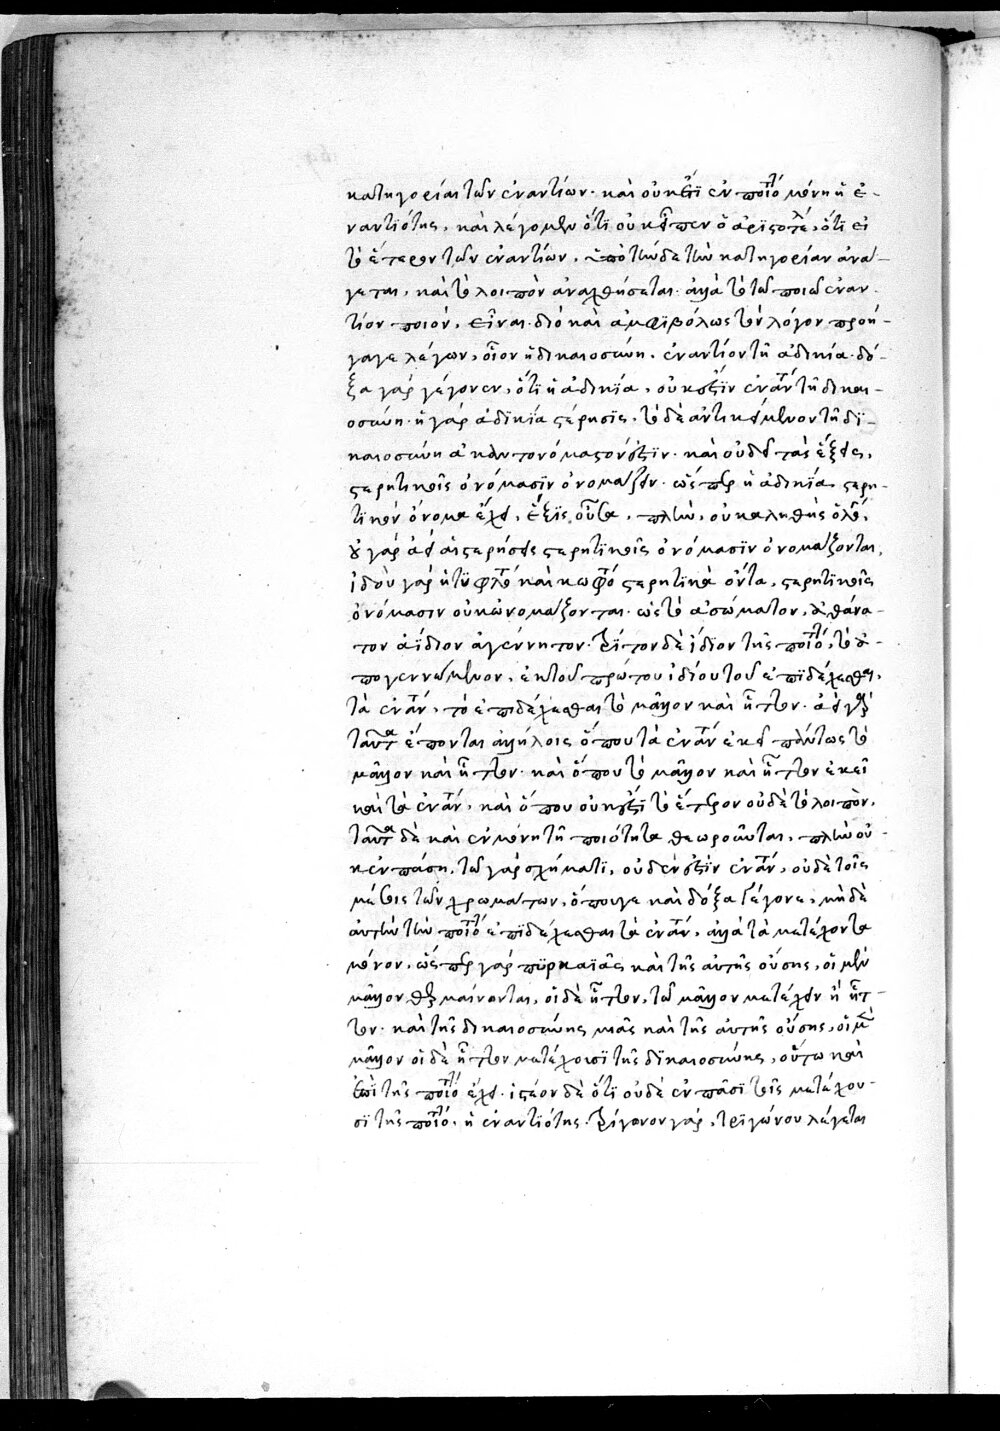 κατηγορίαι τῶν ἐναντίων· καὶ οὐκέτι ἐν ποιότ μόνῃ ἡ ἐ-
ναντιότης, καὶ λέγομεν ὅτι οὐκ εἶπεν ὁ ἀριστοτέλ, ὅτι εἰ
τὸ ἕτερον τῶν ἐναντίων, ὑπὸ τήνδε τὴν κατηγορίαν ἀνά-
γεται, καὶ τὸ λοιπὸν ἀναχθήσεται· ἀλλὰ τὸ τῷ ποιῷ ἐναν-
τίον ποιόν, εἶναι· διὸ καὶ ἀμφιβόλως τὸν λόγον προή-
γαγε λέγων, οἷον ἡ δικαιοσύνη, ἐναντίον τῇ ἀδικία· δό-
ξα γὰρ γέγονεν, ὅτι ἡ ἀδικία, οὐκ ἔστιν ἐναντ τῇ δικαι-
οσύνῃ· ἡ γὰρ ἀδικία στέρησις, τὸ δὲ ἀντικείμενον τῇ δι-
καιοσύνῃ ἀκατονόμαστόν ἐστιν· καὶ οὐδὲ τὰς ἕξεις,
στερητικοῖς ὀνόμασιν ὀνομάζειν· ὥσπερ ἡ ἀδικία στερη-
τικὸν ὄνομα ἔχει, ἕξις οὖσα, πλὴν, οὐκ ἀληθὴς ὁ λόγ,
οὐ γὰρ ἀεὶ αἱ στερήσεις στερητικοῖς ὀνόμασιν ὀνομάζονται,
ἰδοὺ γὰρ ἡ τυφλότ καὶ κωφότ στερητικὰ ὄντα, στερητικοῖς
ὀνόμασιν οὐκ ὠνομάζονται· ὡς τὸ ἀσώματον, ἀθάνα-
τον ἀΐδιον ἀγέννητον· τρίτον δὲ ἴδιον τῆς ποιότ, τὸ ἀ-
πογεννώμενον, ἐκ τοῦ πρώτου ἰδίου τοῦ ἐπιδέχεσθαι,
τὰ ἐναντ, τὸ ἐπιδέχεσθαι τὸ μᾶλλον καὶ ἧττον· ἀεὶ γὰρ
ταῦτα ἕπονται ἀλλήλοις ὅπου τὰ ἐναντ ἐκεῖ πάντως τὸ
μᾶλλον καὶ ἧττον· καὶ ὅπου τὸ μᾶλλον καὶ ἧττον ἐκεῖ
καὶ τὰ ἐναντ, καὶ ὅπου οὐκ ἔστι τὸ ἕτερον οὐδὲ τὸ λοιπὸν,
ταῦτα δὲ καὶ ἐν μόνῃ τῇ ποιότητα θεωροῦνται, πλὴν οὐ-
κ ἐν πάσῃ, τῷ γὰρ σχήματι, οὐδέν ἐστιν ἐναντ, οὐδὲ τοῖς
μέσοις τῶν χρωμάτων, ὅπουγε καὶ δόξα γέγονε, μηδὲ
αὐτὴν τὴν ποιότ ἐπιδέχεσθαι τὰ ἐναντ, ἀλλὰ τὰ μετέχοντα
μόνον, ὥσπερ γὰρ πυρκαϊᾶς καὶ τῆς αὐτῆς οὔσης, οἱ μὲν
μᾶλλον θερμαίνονται, οἱ δὲ ἧττον, τῷ μᾶλλον μετέχειν ἢ ἧτ-
τον· καὶ τῆς δικαιοσύνης μιᾶς καὶ τῆς αὐτῆς οὔσης, οἱ μὲν
μᾶλλον οἱ δὲ ἧττον μετέχουσι τῆς δικαιοσύνης, οὕτω καὶ
ἐπὶ τῆς ποιότ ἔχει· ἰστέον δὲ ὅτι οὐδὲ ἐν πᾶσι τοῖς μετέχου-
σι τῆς ποιότ, ἡ ἐναντιότης· τρίγωνον γὰρ, τριγώνου λέγεται